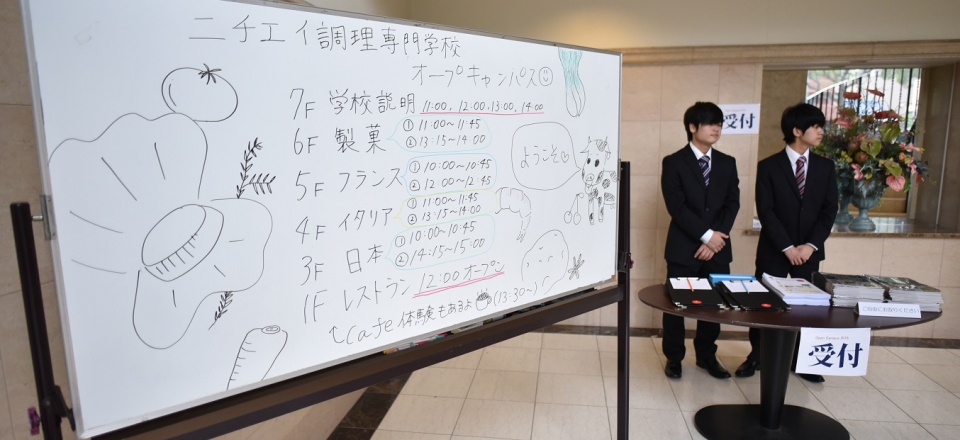 ニチエイ調理専門学校
オープキャンパス
7F 学校説明 11:00, 12:00, 13:00, 14:00
6F 製菓 ① 11:00〜11:45
② 13:15〜14:00
5F フランス ① 10:00〜10:45
② 12:00〜12:45
4F イタリア ① 11:00〜11:45
② 13:15〜14:00
3F 日本 ① 10:00〜10:45
② 14:15〜15:00
1F レストラン 12:00 オープン
↑Cafe 体験もあるよ (13:30〜)
ようこそ♡
受付
受付